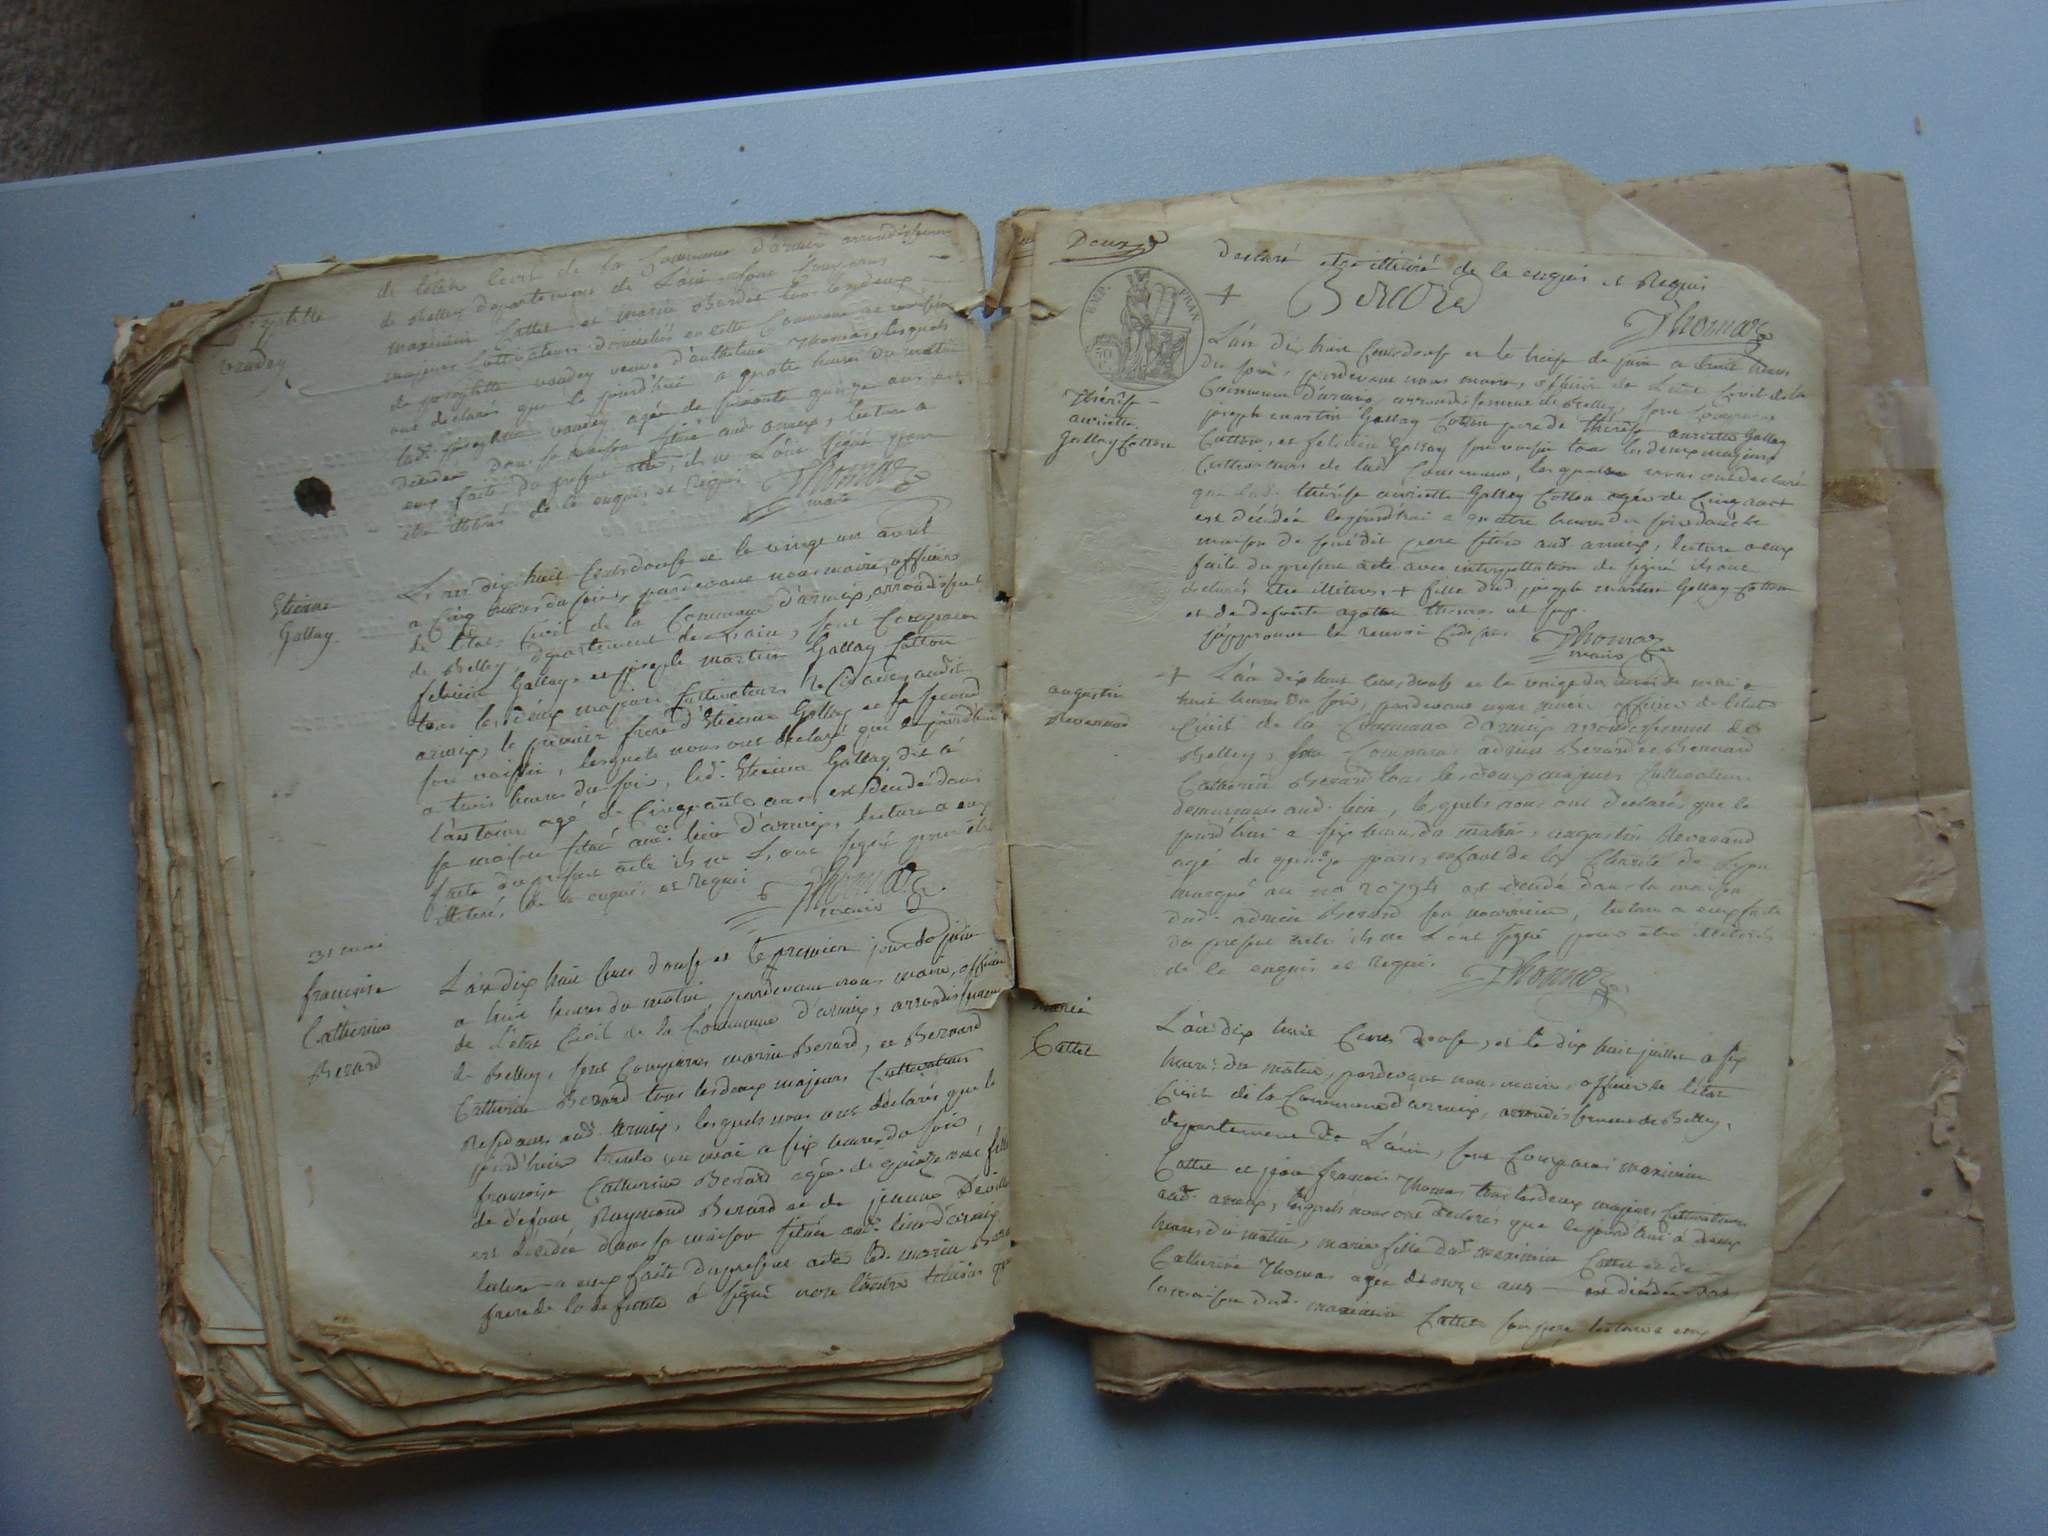 de l'état Civil de la Commune d'armix arrondissem
de Belley departement de L'ain, sont Comparus
maximin Cattet et marin Berard tous les deux
majeurs Cultivateurs domiciliés en cette Commune
vaudey
de vaudey veuve d'anthelme Thomas, lesquels
ont declarés que le jourd'hui a quatre heures du matin
lad. vaudey agée de soixante quinze ans est
decedée dans sa maison situé aud armix, lecture a
eux faite du present acte, ils ne L'ont signé pour
etre illiterés de ce enquis et Requis Thomas
maire
Etienne
Gallay.
L'an dix huit Cents douse et le vingt un avril
a Cinq heures du soir, pardevant nous maire, officier
de l'état Civil de la Commune d'armix, arrondissement
de Belley, departement de L'ain, sont Comparus
felicien Gallay et joseph martin Gallay Cotton
tous les deux majeurs Cultivateurs audit
armix, le premier frere d'Etienne Gallay et le second
son voisin, lesquels nous ont declaré que le jourd'hui
a trois heures du soir, led. Etienne Gallay dit
agé de Cinquante ans, est décédé dans
sa maison situé aud. lieu d'armix, lecture a eux
faite du present acte ils ne L'ont signé pour être
illiteré, de ce enquis et Requis Thomas
maire
31 mai
francoise
Catherine
Berard
L'an dix huit Cents douse et le premier jour de juin
a huit heures du matin, pardevant nous maire, officier
de l'état Civil de la Commune d'armix, arrondissement
de Belley, sont Comparus marin Berard, et Bernard
Catherin Berard tous les deux majeurs Cultivateurs
Residants aud. armix, lesquels nous ont declarés que le
jourd'hier trente un mai a six heures du soir,
francoise Catherine Berard agée de quinze ans fille
de defunt Raymond Berard et de jeanne
est decedée dans sa maison située aud. lieu d'armix
lecture a eux faite du present acte led. marin Berard
frere de la defunte a signé non l'autre
Deux
declaré etre illiteré de ce enquis et Requis
+ Berard
Thomas
EMP. FRAN.
50
Thérèse
auriette
Gallay Cotton
L'an dix huit Cents douse et le treise de juin a huit heures
du soir, pardevant nous maire, officier de L'état Civil de la
Commune d'armix, arrondissement de Belley, sont Comparus
joseph martin Gallay Cotton pere de thérèse auriette Gallay
Cotton, et felicien Gallay son voisin tous les deux majeurs
Cultivateurs de lad. Commune, lesquels nous ont declaré
que lad. thérèse auriette Gallay Cotton agée de Cinq ans
est décédée le jourd'hui a quatre heures du soir dans la
maison de sondit pere située aud armix, lecture a eux
faite du present acte avec interpellation de signé ils ont
declarés etre illiterés + fille dud joseph martin Gallay Cotton
et de defunte agathe thomas
j'approuve le renvoi Thomas
maire
augustin
+ L'an dix huit Cents douse et le vingt du mois de mai a
huit heures du soir, pardevant nous maire officier de l'état
Civil de la Commune d'armix arrondissement de
Belley, sont Comparus adrien Berard et Bernard
Catherin Berard tous les deux majeurs Cultivateurs
demeurants aud. lieu, lesquels nous ont declarés que le
jourd'hui a six heures du matin, augustin
agé de quinze jours, enfant de la Charité de Lyon
marqué au no 20794 est decedé dans la maison
dud. adrien Berard son nourricier, lecture a eux faite
du present acte ils ne L'ont signé pour etre illiterés
de ce enquis et Requis. Thomas
marie
Cattet
L'an dix huit Cents douse, et le dix huit juillet a six
heures du matin, pardevant nous maire, officier de l'état
Civil de la Commune d'armix, arrondissement de Belley,
departement de L'ain, sont Comparus maximin
Cattet et jean francois Thomas tous les deux majeurs Cultivateurs
aud. armix, lesquels nous ont declarés que le jourd'hui a deux
heures du matin, marie fille dud maximin Cattet et de
Catherine Thomas agée de onze ans est décédée dans
la maison dud. maximin Cattet son pere lecture a eux